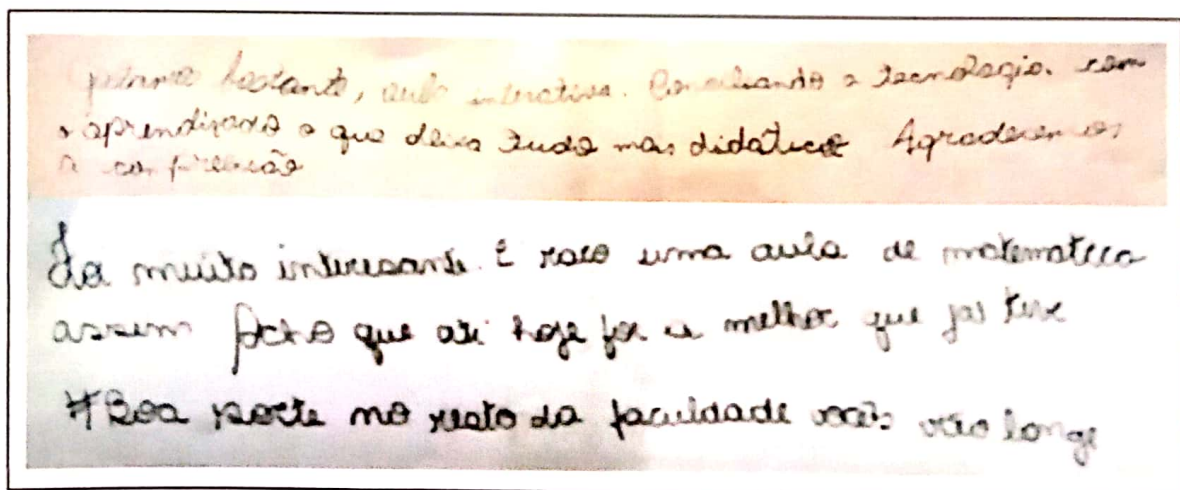 bastante, aula interativa. Conciliando a tecnologia. com
o aprendizado o que deixa tudo mas didático Agradecemos
a
muito interesante. É raro uma aula de matematica
assim Acho que até hoje foi a melhor que já tive
#Boa sorte no resto da faculdade vocês vão longe